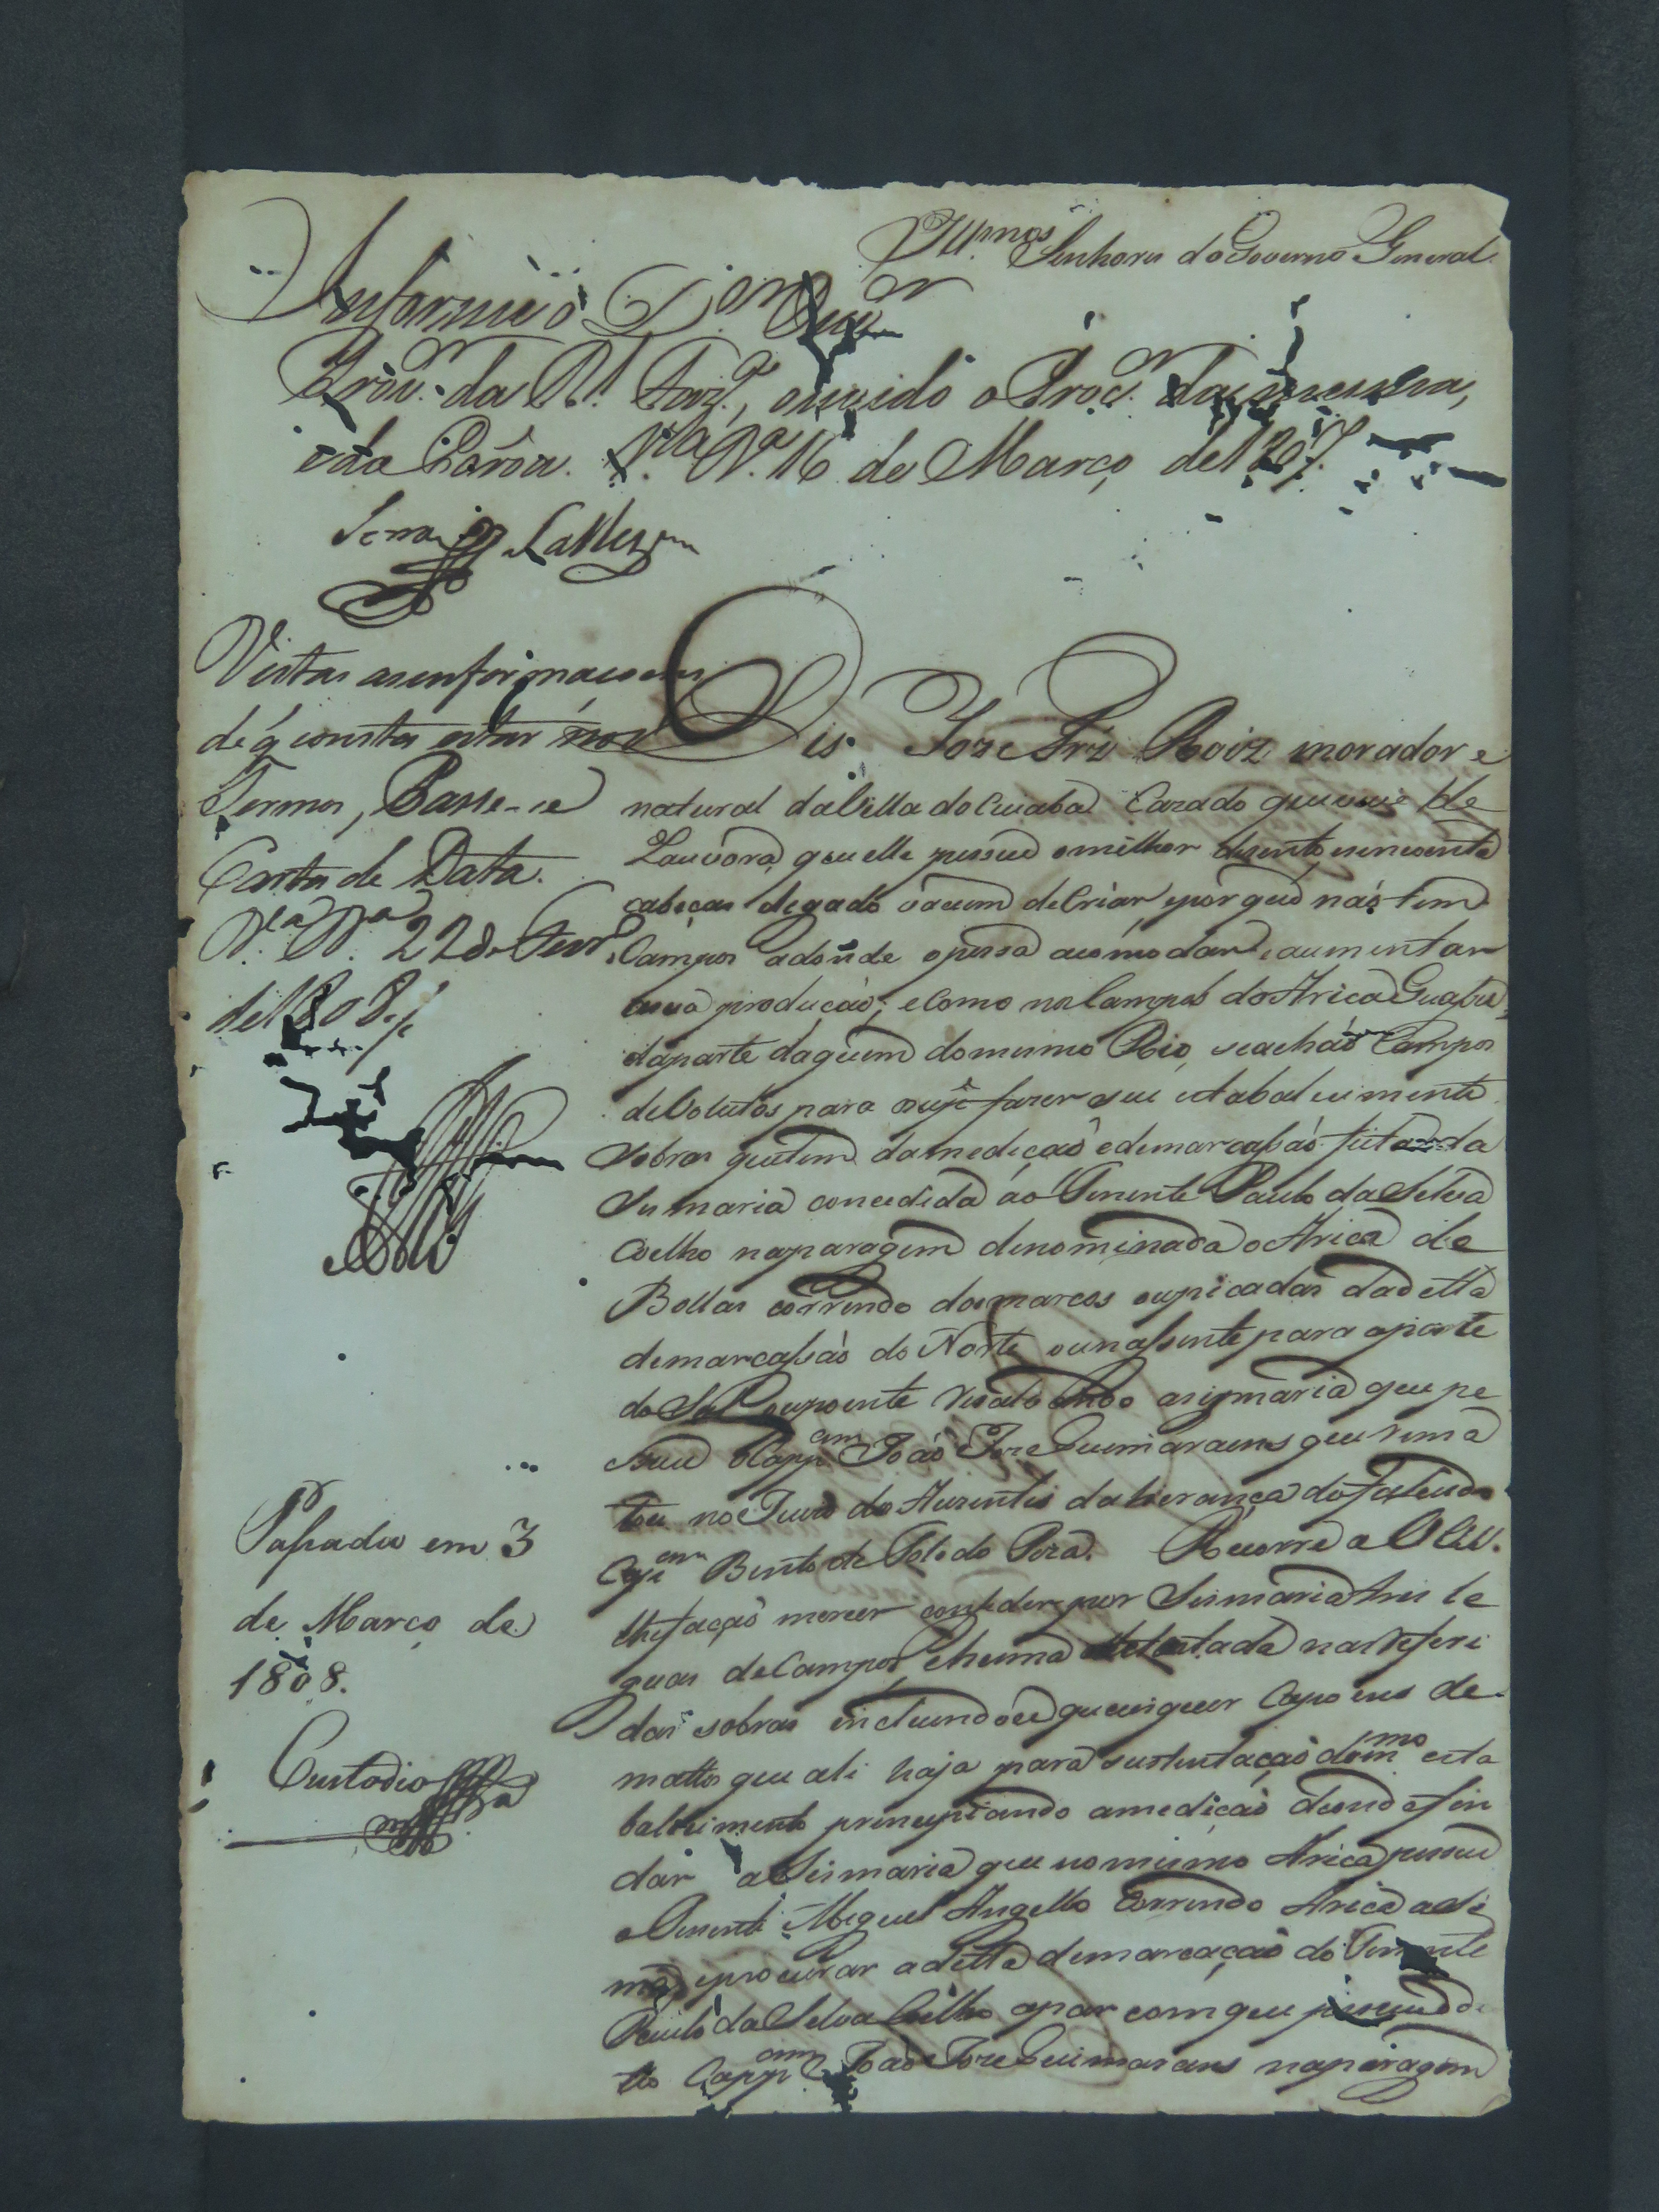 Ill.mos Senhores do Governo General
Informe o D.or Ouv.or
Prov.or da R.l Faz.da, ouvido o Proc.or da mesma,
e da Corôa. V.a B.a 16 de Março de 1807.
Vistas as enformaçoens
de q̃ consta estar nos
Termos, Passe-se
Carta de Data.
V.a B.a 22 de Fevr.o
de 1808
Passada em 3
de Março de
1808.
Custodio
Dis Joze Frz Roiz morador e
natural da Villa do Cuiabá Cazado que vive de
Lavoura, que elle possue o milhor de cento e sincoenta
cabeças de gado vacum de Criar, e por que não tem
Campos adonde o possa acómodar, e aumentar
a sua produção; e Como nos Campos do Arica Guasu,
da parte daquem do mesmo Rio, se achão Campos
devolutos para o sup.e fazer seu estabalecimento
Sobras que tem da medição e demarcassão feita da
Sismaria concedida ao Tenente Paulo da Silva
Coelho na paragem denominada o Arica de
Bollas correndo dos marcos ou picadas da detta
demarcassão do Norte ou nassente para a parte
do Sul ou poente resalvando a sismaria que pe
ssue o Capp.am João Joze Guimaraens que rema
tou no Juizo dos Auzentes da herança do falecido
Cap.am Bento de Toledo Piza. Recorre a V.V.S.S.
lhe fação mercer conseder por Sismaria tres le
guas de Campos, e huma de testada nas referi
das sobras incluindoce quausquer Capoens de
mattos que ali haja para sustentação do m.mo esta
balecimento principiando a medição donde fin
dar a Sismaria que no mesmo Arica possue
o Tenente Miguel Angello Correndo Arica asi
ma, e procurar a ditta demarcação do Tenente
Paulo da Silva Coelho apar com que possue o di
tto Capp.am João Joze Guimarans na paragem